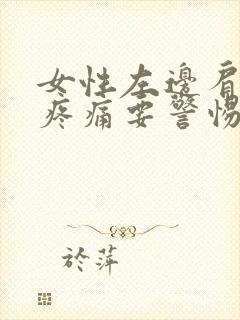 女性左邊肩
疼痛要警惕
於萍